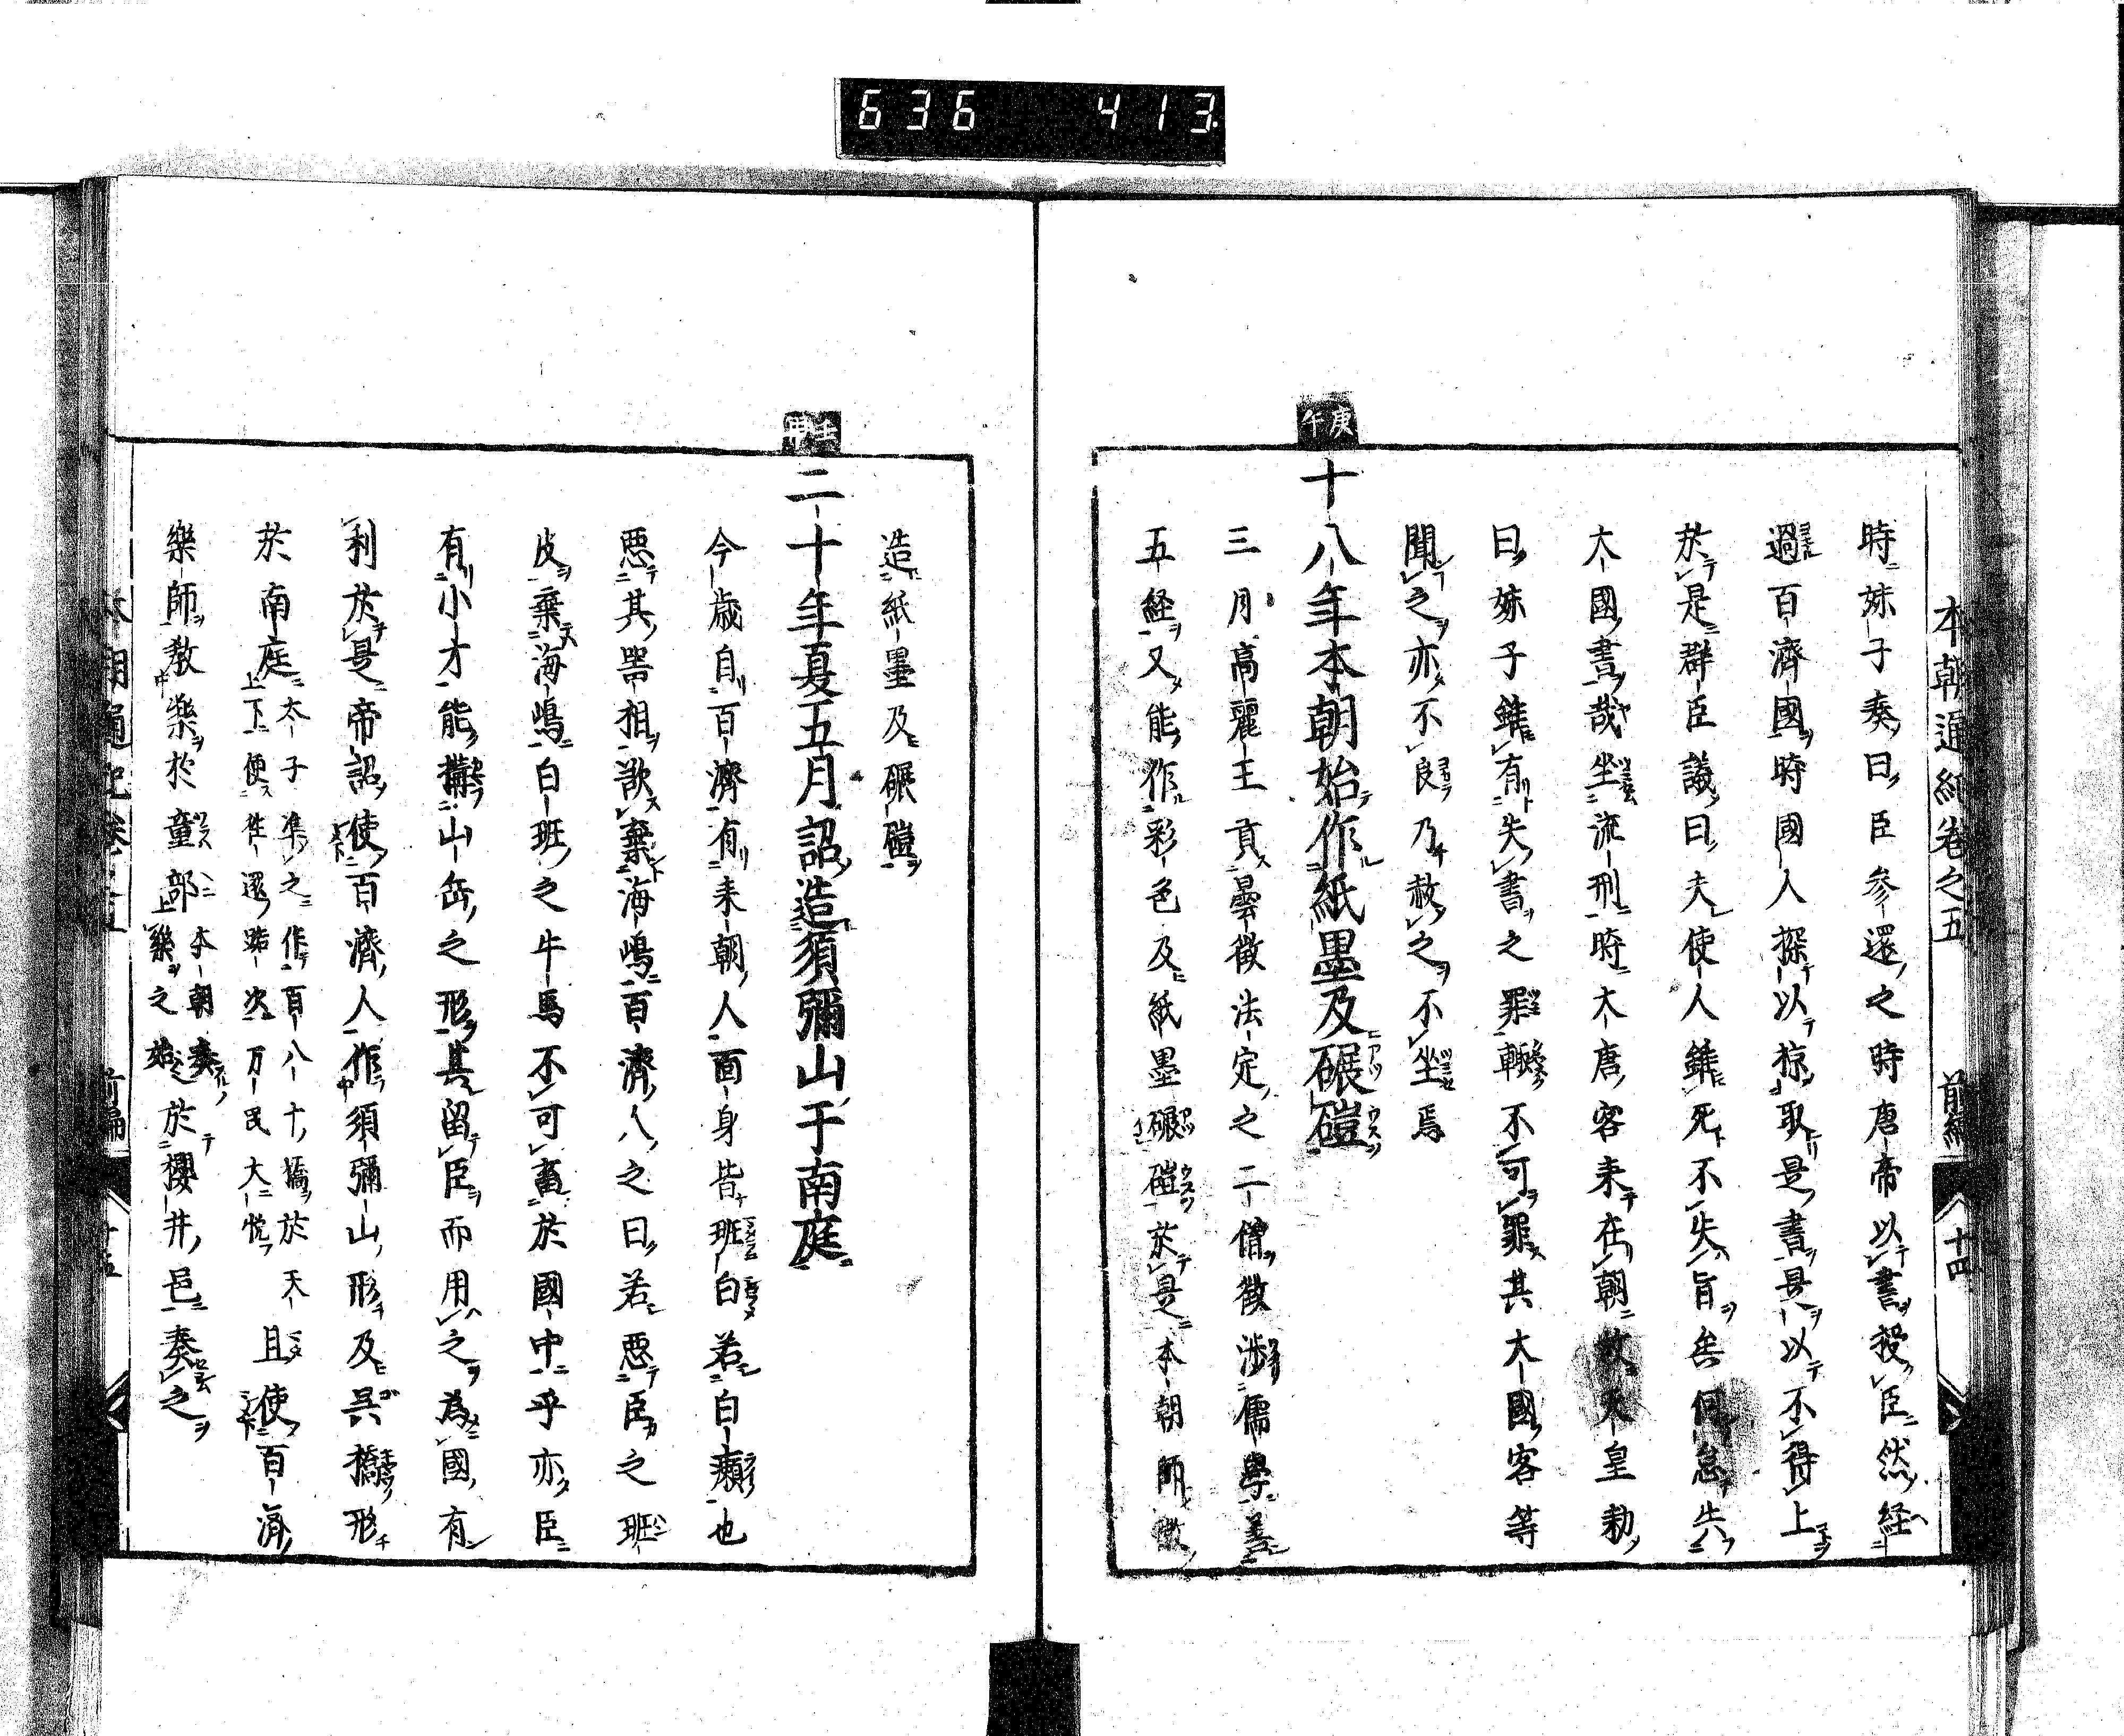 636 413
本朝通紀卷之五 前編 十四
時妹子奏曰臣參還之時唐帝以書授臣然経
過百濟國時國人探以掠取是書是以不得上
於是群臣議曰夫使人雖死不失旨矣何怠失
大國書哉坐流刑時大唐客来在朝故天皇勅
曰妹子雖有失書之罪輙不可罪其大國客等
聞之亦不良乃赦之不坐焉
庚午
十八年本朝始作紙墨及碾磑
三月高麗王貢曇徴法定之二僧徴渉儒學善
五経又能作彩色及紙墨碾磑於是本朝師徴
造紙墨及碾磑
壬申
二十年夏五月詔造須彌山于南庭
今歳自百濟有来朝人面身皆班白若白癩也
惡其異相欲棄海嶋百濟人之曰若惡臣之班
皮棄海嶋白班之牛馬不可畜於國中乎亦臣
有小才能構山岳之形其留臣而用之為國有
利於是帝詔使百濟人作須彌山形及呉橋形
於南庭 太子準之作百八十橋於天下使往還路次万民大悦 且使百濟
樂師教樂於童部 本朝奏樂之始 於櫻井邑奏之
本朝通紀卷之五 前編 十五